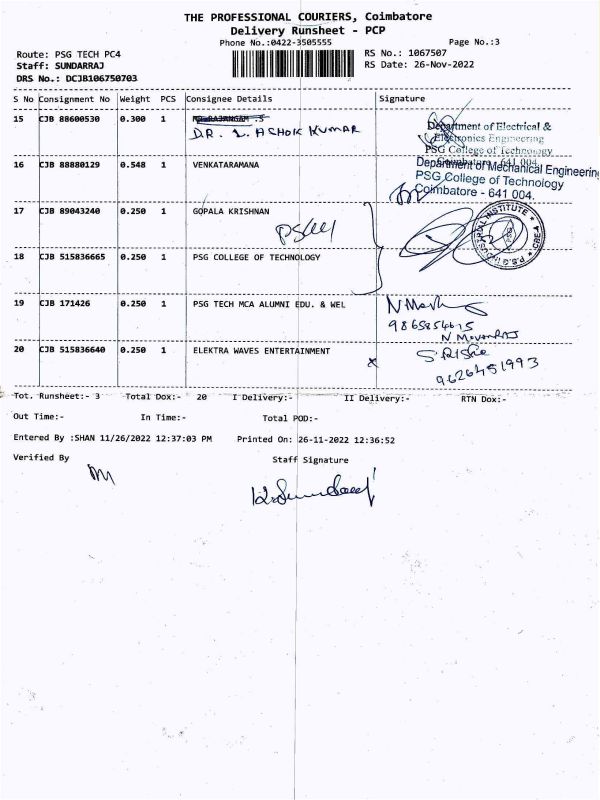 THE PROFESSIONAL COURIERS, Coimbatore
Delivery Runsheet - PCP
Phone No.:0422-3505555 Page No.:3
Route: PSG TECH PC4 RS No.: 1067507
Staff: SUNDARRAJ RS Date: 26-Nov-2022
DRS No.: DCJB106750703
S No Consignment No Weight PCS Consignee Details Signature
15 CJB 88600530 0.300 1
DR. L. ASHOK KUMAR
Department of Electrical &
Electronics Engineering
PSG College of Technology
Coimbatore - 641 004.
16 CJB 88880129 0.548 1 VENKATARAMANA
Department of Mechanical Engineering
PSG College of Technology
Coimbatore - 641 004.
17 CJB 89043240 0.250 1 GOPALA KRISHNAN
18 CJB 515836665 0.250 1 PSG COLLEGE OF TECHNOLOGY
19 CJB 171426 0.250 1 PSG TECH MCA ALUMNI EDU. & WEL
9865854615
20 CJB 515836640 0.250 1 ELEKTRA WAVES ENTERTAINMENT
9626451993
Tot. Runsheet:- 3 Total Dox:- 20 I Delivery:- II Delivery:- RTN Dox:-
Out Time:- In Time:- Total POD:-
Entered By :SHAN 11/26/2022 12:37:03 PM Printed On: 26-11-2022 12:36:52
Verified By Staff Signature